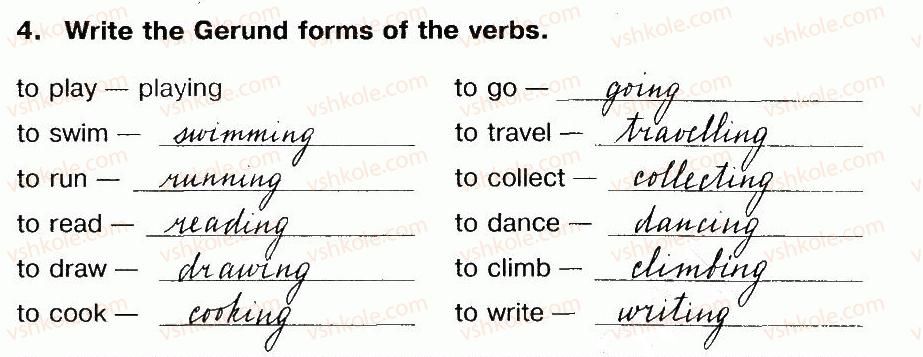 4. Write the Gerund forms of the verbs.
to play — playing
to swim — swimming
to run — running
to read — reading
to draw — drawing
to cook — cooking
to go — going
to travel — travelling
to collect — collecting
to dance — dancing
to climb — climbing
to write — writing